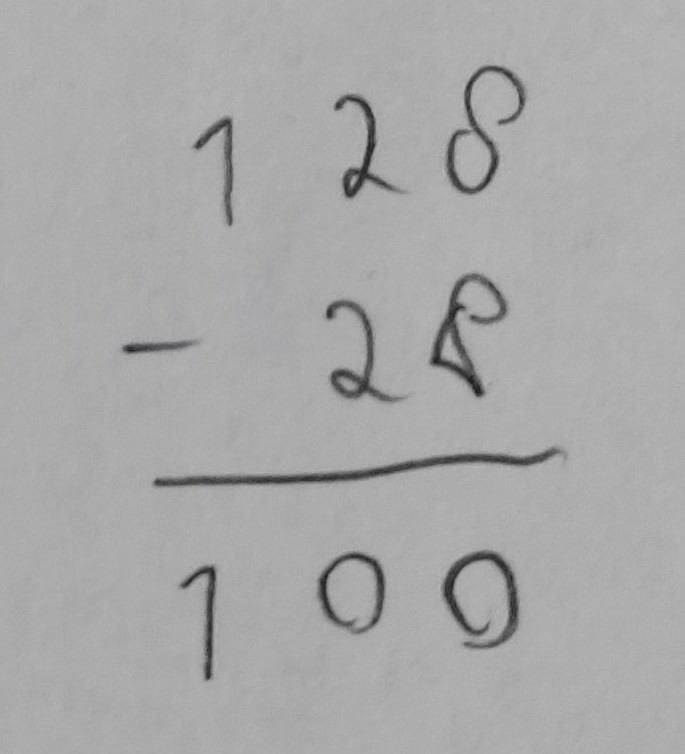 128
- 28
100